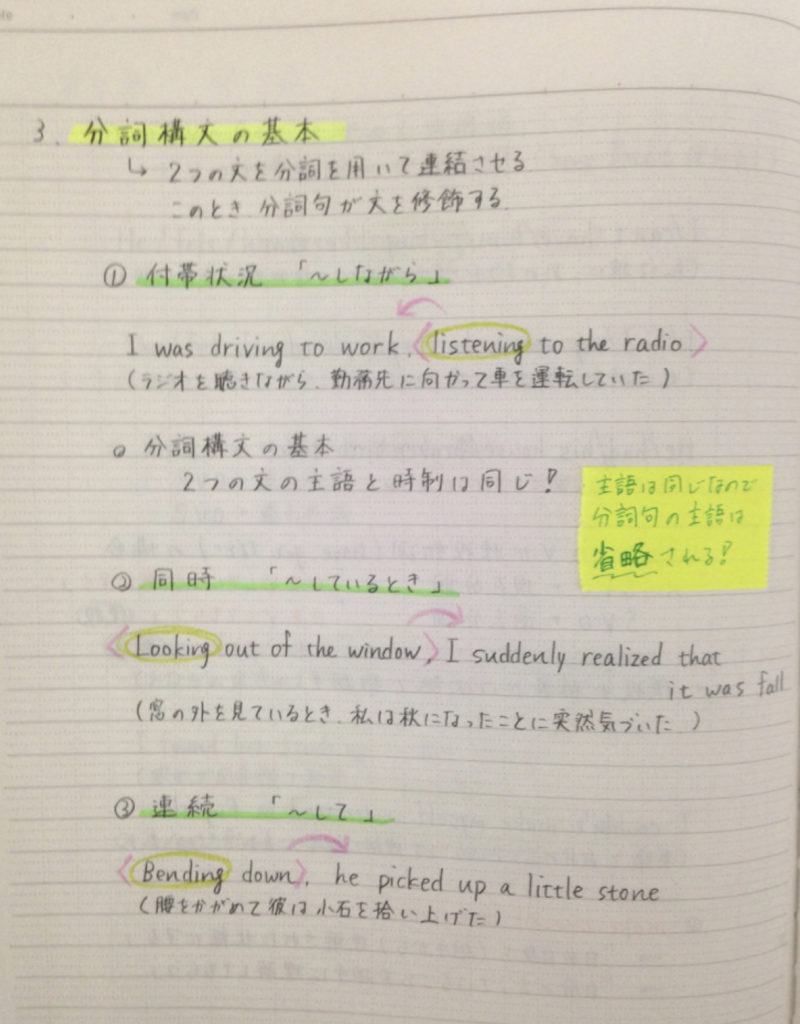 3. 分詞構文の基本
↳ 2つの文を分詞を用いて連結させる
このとき 分詞句が文を修飾する.
① 付帯状況 「〜しながら」
I was driving to work, 〈listening to the radio〉
(ラジオを聴きながら、勤務先に向かって車を運転していた)
○ 分詞構文の基本
2つの文の主語と時制は同じ!
主語は同じなので
分詞句の主語は
省略される!
② 同時 「〜しているとき」
〈Looking out of the window〉, I suddenly realized that
it was fall
(窓の外を見ているとき、私は秋になったことに突然気づいた)
③ 連続 「〜して」
〈Bending down〉, he picked up a little stone
(腰をかがめて彼は小石を拾い上げた)